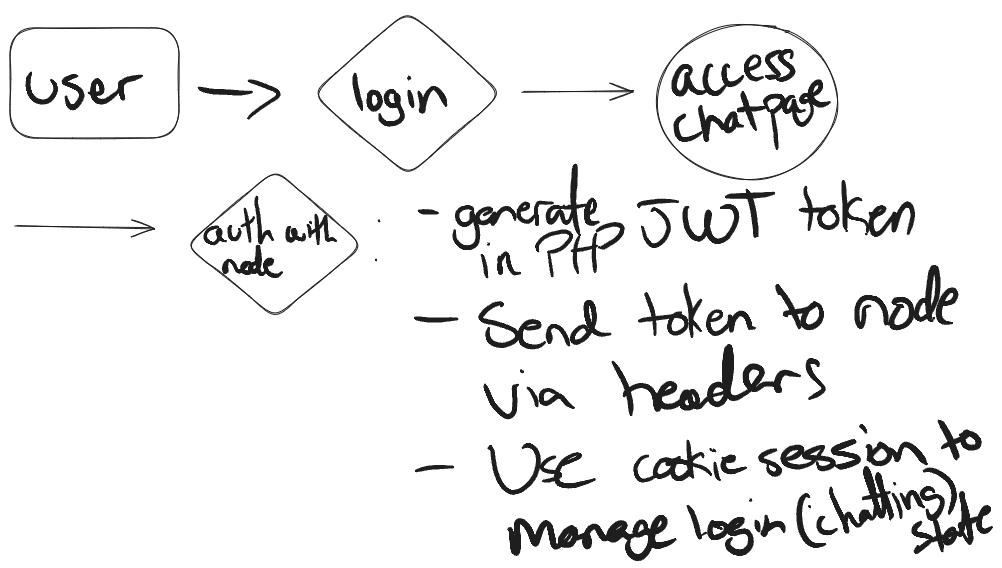 user
login
access
chatpage
auth with
node
- generate JWT token
in PHP
- Send token to node
via headers
- Use cookie session to
manage login (chatting)
state